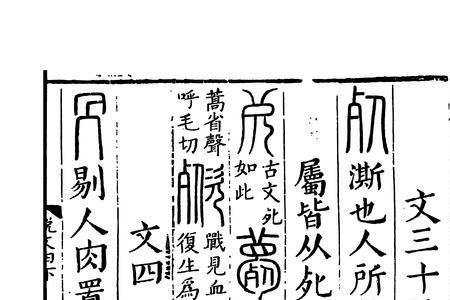 文三十
死澌也人所
屬皆从死
古文死
如此
薧
蒿省聲
呼毛切
戰見血
復生爲
文四
冎剔人肉置
說文四下